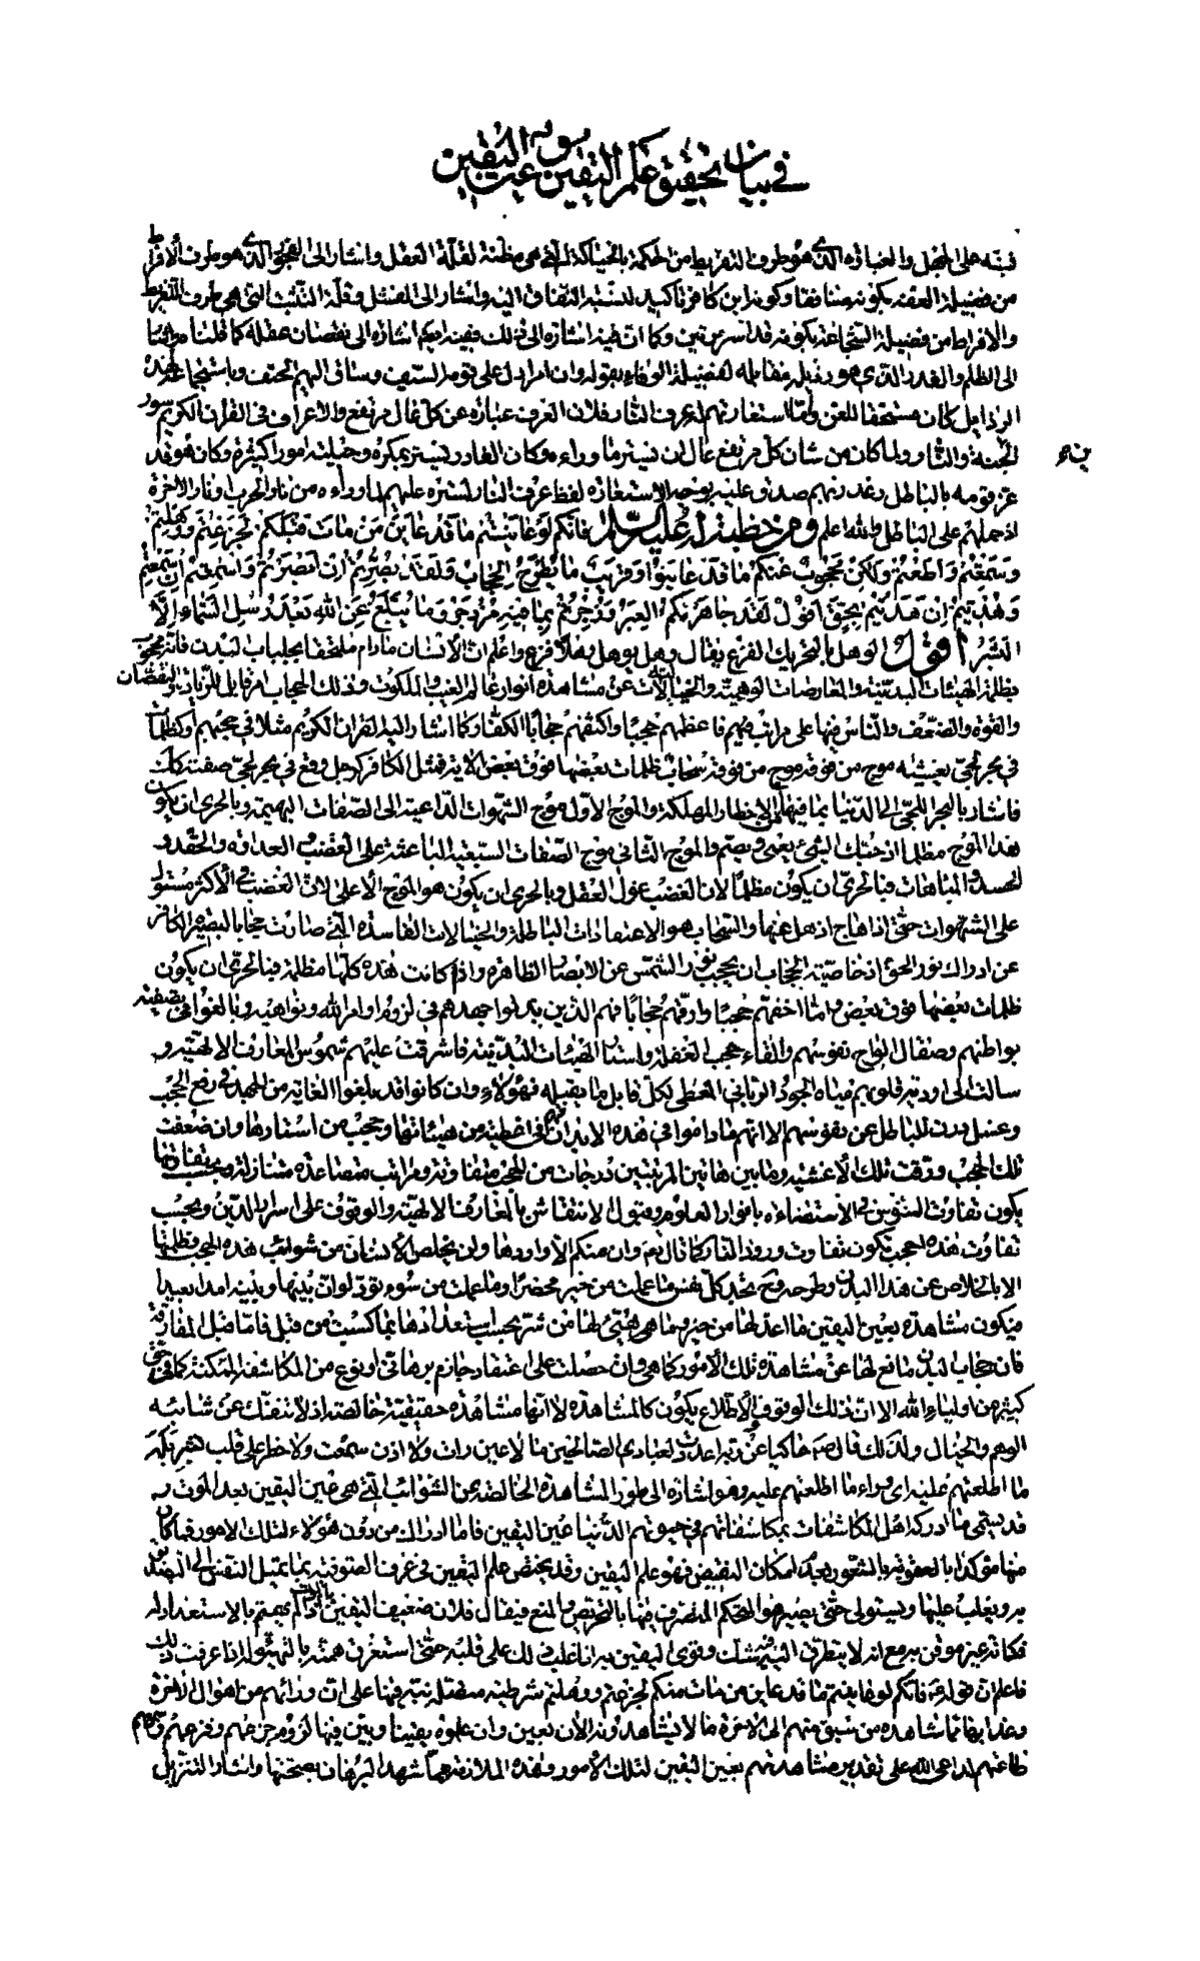 في بيان تحقيق علم اليقين وعين اليقين
نبّه على الجهل والغباوة الذي هو طرف التفريط من الحكمة بالحياكة الّتي هي مظنة لقلّة العقل وأشار الى الفجور الذي هو طرف الافراط
من فضيلة العفة بكونه منافقا وكونه ابن كافر تأكيد لنسبة النفاق اليه وأشار الى الفشل وقلة التثبت التي هي طرف التفريط
والافراط من فضيلة الشجاعة بكونه قد اسر مرتين وكما ان فيه اشارة الى ذلك ففيه ايضا اشارة الى نقصان عقله كما قلنا وأشار
الى الظلم والغدر الذي هو رذيلة مقابلة لفضيلة الوفاء بقوله وان امرأ دل على قومه السيف وساق اليهم الحتف وباستجماعه لهذه
الرذايل كان مستحقا للعن وأمّا استعارتهم له عرف النار فلان العرف عبارة عن كل عال مرتفع والاعراف في القران الكريم سور
الجنة والنار ولما كان من شان كل مرتفع عال ان يستر ما وراءه وكان الغادر يستر بمكره وحيلته امورا كثيرة وكان هو قد
غرّ قومه بالباطل وغدر بهم صدق عليه بوجه الاستعارة لفظ عرف النار لستره عليهم لما وراءه من نار الحرب او نار الاخرة
اذ حملهم على الباطل والله اعلم ومن خطبة له عليه السلام فانكم لو عاينتم ما قد عاين من مات قبلكم لجزعتم ووهلتم
وسمعتم واطعتم ولكن محجوب عنكم ما قد عاينوا وقريب ما يطرح الحجاب ولقد بصّرتم ان ابصرتم واسمعتم ان سمعتم
وهديتم ان اهتديتم بحق اقول لقد جاهرتكم العبر وزجرتم بما فيه مزدجر وما يبلّغ عن الله بعد رسل السماء الا
البشر أقول الوهل بالتحريك الفزع يقال وهل يوهل وهلا فزع واعلم ان الانسان مادام ملتحفا بجلباب البدن فانه محجوب
بظلمة الهيئات البدنية والمعارضات الوهمية والخيالات عن مشاهدة أنوار عالم الغيب والملكوت وذلك الحجاب امر قابل للزيادة والنقصان
والقوة والضعف والناس فيها على مراتب فهم فاعظمهم حجبا واكثفهم حجابا الكفار وكما أشار اليه القران الكريم مثلا في حجبهم او كظلمات
في بحر لجي يغشيه موج من فوقه موج من فوقه سحاب ظلمات بعضها فوق بعض الاية فمثل الكافر كرجل وقع في بحر لجي صفته كذلك
فاشار بالبحر اللجي الى الدنيا بما فيها من الاخطار المهلكة والموج الاول موج الشهوات الداعية الى الصفات البهيمة وبالحري ان يكون
هذا الموج مظلما اذ حبك الشيء يعمي ويصم والموج الثاني موج الصفات السبعية الباعثة على الغضب والعداوة والحقد و
الحسد والمباهات فبالحري ان يكون مظلما لان الغضب غول العقل وبالحري ان يكون هو الموج الاعلى لان الغضب في الاكثر مستول
على الشهوات حتى اذا هاج اذهل عنها والسحاب هو الاعتقادات الباطلة والخيالات الفاسدة الّتي صارت حجابا لبصيرة الكافر
عن ادراك نور الحق اذ خاصية الحجاب ان يحجب نور الشمس عن الابصار الظاهرة واذا كانت هذه كلها مظلمة فبالحري ان يكون
ظلمات بعضها فوق بعض وأمّا اخفهم حجبا وارقهم حجابا فهم الذين بذلوا جهدهم في لزوم اوامر الله ونواهيه وبالغوا في تصفية
بواطنهم وصقال الواح نفوسهم والقاء حجب الغفلة واستار الهيئات البدنية فاشرقت عليهم شموس المعارف الالهية و
سالت الى اودية قلوبهم مياه الجود الرباني المعطي لكل قابل ما يقبله فهؤلاء وان كانوا قد بلغوا الغاية من الجهد في رفع الحجب
وغسل درن الباطل عن نفوسهم الا انهم ماداموا في هذه الابدان فهم في اغطية من هيئاتها وحجب من استارها وان ضعفت
تلك الحجب ورقت تلك الاغشية وما بين هاتين المرتبتين درجات من الحجب متفاوتة ومراتب متصاعدة متنازلة وبحسب تفاوتها
يكون تفاوت النفوس في الاستضاءة بانوار العلوم وقبول الانتقاش بالمعارف الالهية والوقوف على اسرار الدين وبحسب
تفاوت هذه الحجب تكون تفاوت ورود النار كما قال تعم وان منكم الا واردها ولن يخلص الانسان من شوائب هذه الحجب وظلمتها
الا بالخلاص عن هذا البدن وطرحه وح تجد كل نفس ما عملت من خير محضرا وما عملت من سوء تود لو ان بينها وبينه امدا بعيدا
فيكون مشاهدة بعين اليقين ما اعد لها من خير وما هو مهيئ لها من شر بحسب استعدادها بما كسبت من قبل فاما قبل المفارقة
فان حجاب البدن مانع لها عن مشاهدة تلك الامور كما هي وان حصلت على اعتقاد جازم برهاني او نوع من المكاشفة الممكنة كما في حق
كثير من اولياء الله الا ان ذلك الوقوف والاطلاع يكون كالمشاهدة لا انها مشاهدة حقيقية خالصة اذ لا تنفك عن شائبة
الوهم والخيال ولذلك قال صم حاكيا عن ربه اعددت لعبادي الصالحين ما لا عين رات ولا اذن سمعت ولا خطر على قلب بشر بله
ما اطلعتهم عليه اي وراء ما اطلعتهم عليه وهو اشارة الى طور المشاهدة الخالصة عن الشوائب الّتي هي عين اليقين بعد الموت و
قد يسمى ما ادركه اهل المكاشفات بمكاشفاتهم في حيوتهم الدنيا عين اليقين فاما ادراك من دون هؤلاء لتلك الامور فما كان
منها مؤكدا بالعقوفه بالشعور بعدم امكان النقيض فهو علم اليقين وقد يختص علم اليقين في عرف الصوفية بما يميل النفس الى التصديق
به ويغلب عليها ويستولي حتى يصير هو المتحكم المتصرف فيها بالتحريص والمنع فيقال فلان ضعيف اليقين بالموت اذا لم يهتم بالاستعداد له
فكانه غير موقن به مع انه لا يتطرق اليه فيه شك وقوي اليقين به اذا غلب ذلك على قلبه حتى استغرق همته بالتهيؤ له اذا عرفت ذلك
فاعلم ان قوله عم فانكم لو عاينتم ما قد عاين من مات منكم لجزعتم ووهلتم شرطية متصلة نبه فيها على ان ورائهم من اهوال الاخرة
وعذابها ما شاهده من سبق منهم الى الاخرة ما لا يشاهدونه الان بعين وان علموه يقينا وبين فيها لزوم جزعهم وفزعهم وسمعهم
طاعتهم لداعي الله على تقدير مشاهدتهم بعين اليقين لتلك الامور وهذه الملازمة مما شهد البرهان بصحتها واشار التنزيل